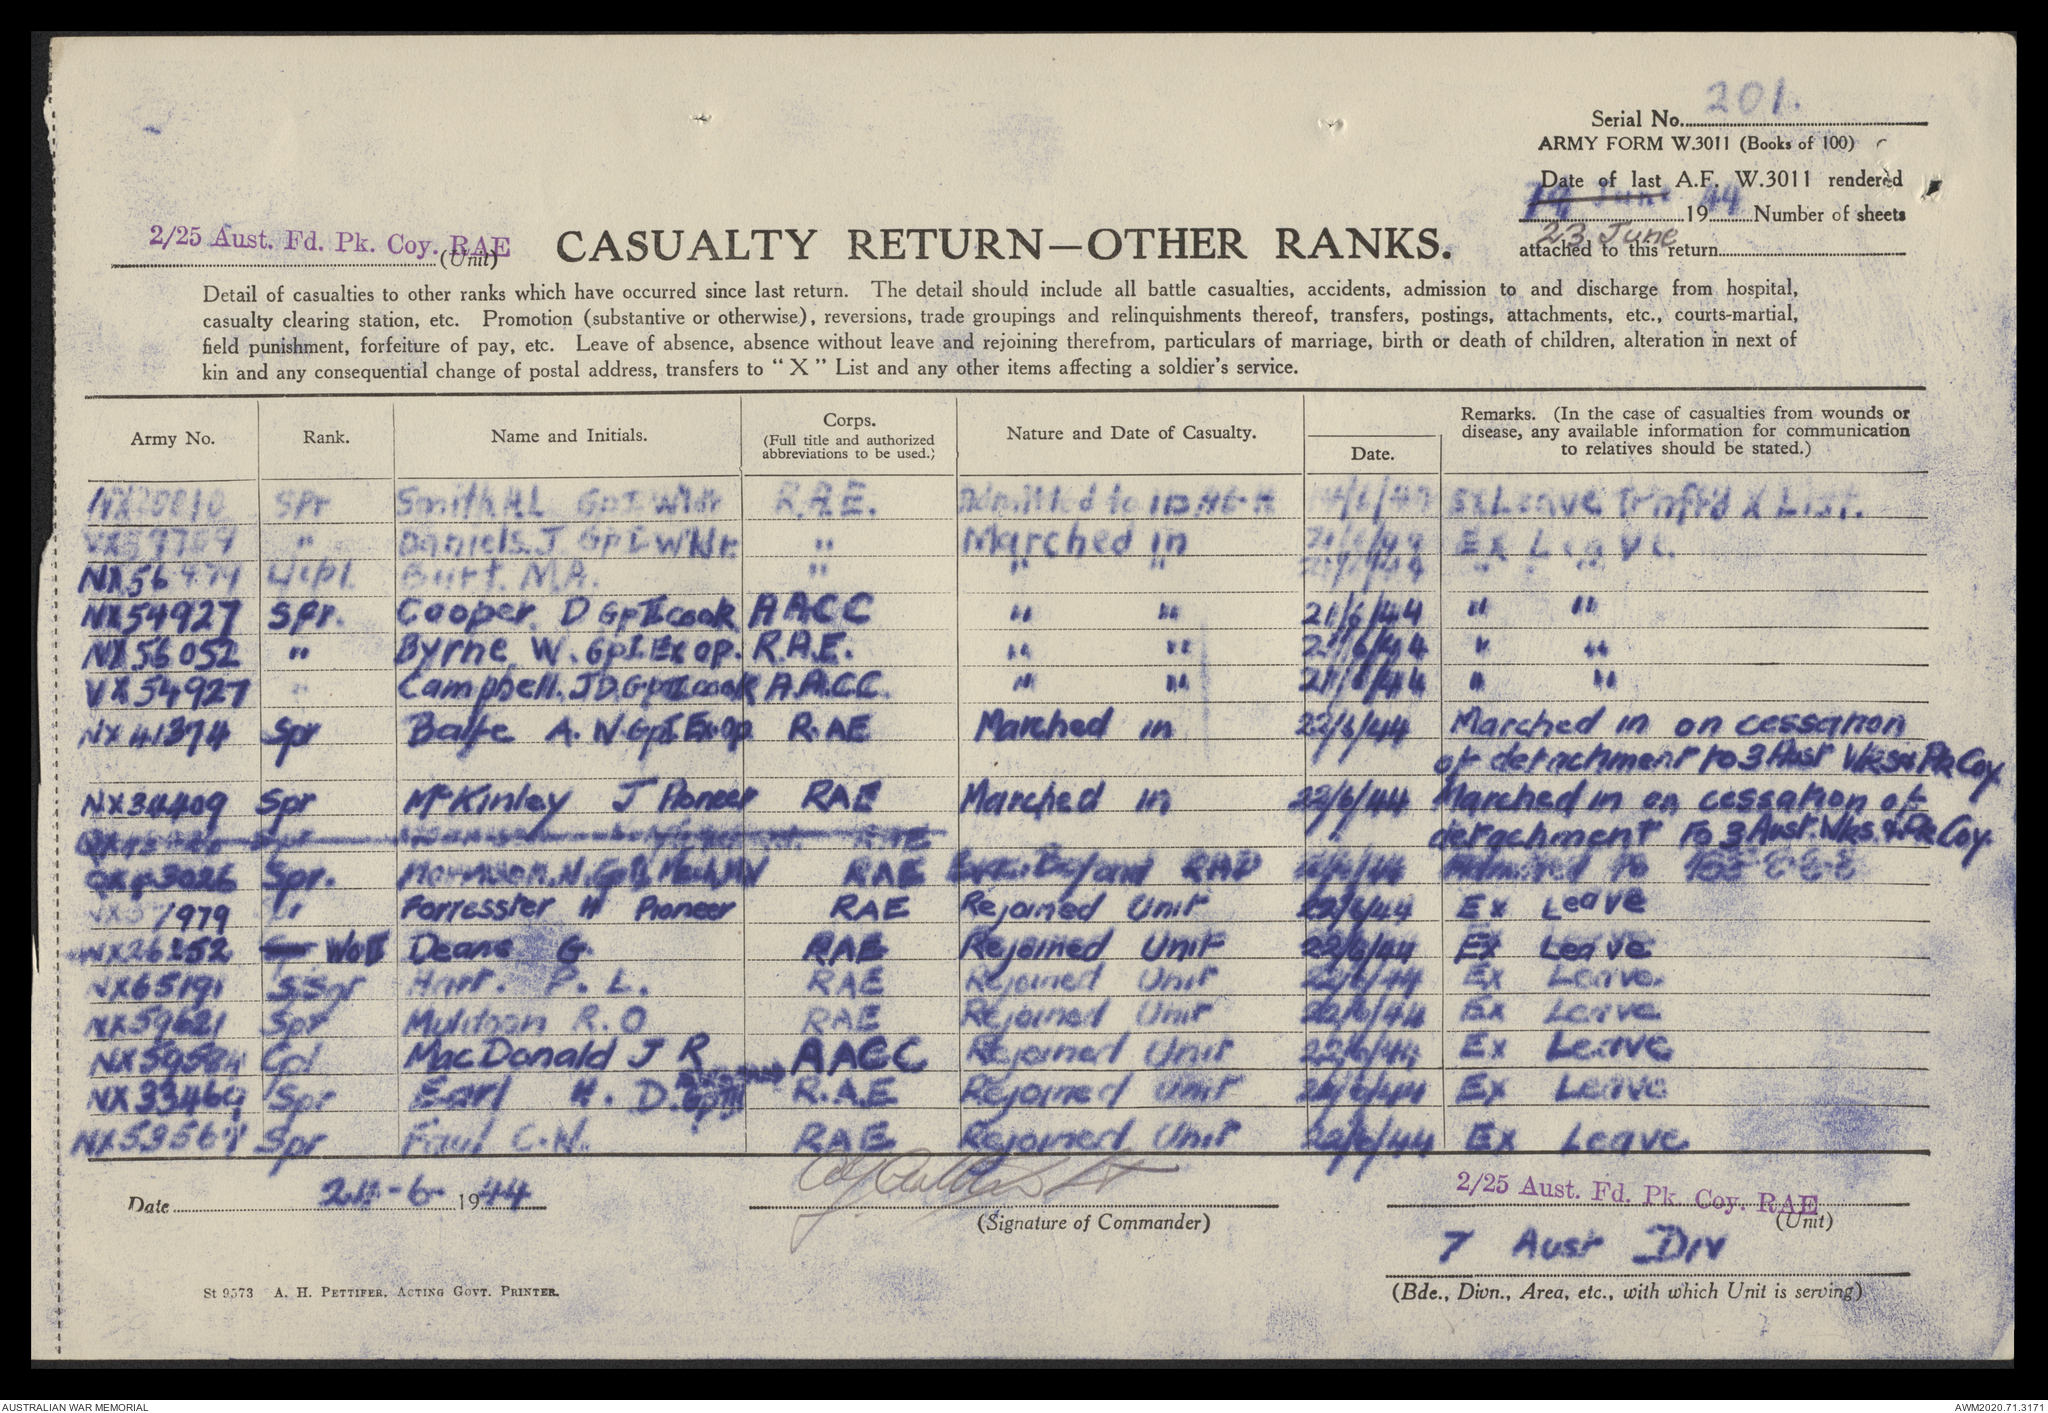 201.
Serial No.
ARMY FORM W.3011 (Books of 100)
Date of last A.F. W.3011 rendered
19 June 1944 Number of sheets
23 June
attached to this return
2/25 Aust. Fd. Pk. Coy. RAE
(Unit)
CASUALTY RETURN—OTHER RANKS.
Detail of casualties to other ranks which have occurred since last return. The detail should include all battle casualties, accidents, admission to and discharge from hospital,
casualty clearing station, etc. Promotion (substantive or otherwise), reversions, trade groupings and relinquishments thereof, transfers, postings, attachments, etc., courts-martial,
field punishment, forfeiture of pay, etc. Leave of absence, absence without leave and rejoining therefrom, particulars of marriage, birth or death of children, alteration in next of
kin and any consequential change of postal address, transfers to "X" List and any other items affecting a soldier's service.
Army No. Rank. Name and Initials. Corps. (Full title and authorized abbreviations to be used.) Nature and Date of Casualty. Date. Remarks. (In the case of casualties from wounds or disease, any available information for communication to relatives should be stated.)
Spr Smith H.L Gp I Wldr R.A.E. Admitted to Ex Leave Trnffd X List.
" Daniels. J Gp I Wldr. " Marched in Ex Leave.
NX56 Burt. M.A. " " " " "
NX54927 Spr. Cooper D Gp II cook AACC " " 21/6/44 " "
NX56052 " Byrne W. Gp I. Ex Op. R.A.E. " " 21/6/44 " "
VX54927 " Campbell. J D. Gp II cook A.A.C.C. " " 21/6/44 " "
NX41374 Spr Balfe A. N. Gp I Ex Op R.AE Marched in 22/6/44 Marched in on cessation
of detachment to 3 Aust Wks & Pk Coy
NX34409 Spr McKinley J Pioneer RAE Marched in 22/6/44 Marched in on cessation of
detachment to 3 Aust. Wks. & Pk Coy.
Spr RAE
Spr. N. Gp II Mech MV RAE Evac. Beyond RAP Admitted to
1979 Forresster H Pioneer RAE Rejoined Unit 22/6/44 Ex Leave
NX26252 WOII Deane G. RAE Rejoined Unit 22/6/44 Ex Leave
NX65191 SSgr Harr. P. L. RAE Rejoined Unit 22/6/44 Ex Leave.
NX59621 Spr Muldoon R. O RAE Rejoined Unit 22/6/44 Ex Leave
NX59584 Cpl MacDonald J R AACC Rejoined Unit 22/6/44 Ex Leave
NX33469 Spr Earl H. D. Gp III R.A.E Rejoined Unit 22/6/44 Ex Leave
Spr Faul C.N. RAE Rejoined Unit 22/6/44 Ex Leave
Date -6- 1944
(Signature of Commander)
2/25 Aust. Fd. Pk. Coy. RAE
(Unit)
7 Aust Div
(Bde., Divn., Area, etc., with which Unit is serving)
St 9573 A. H. PETTIFER, ACTING GOVT. PRINTER.
AUSTRALIAN WAR MEMORIAL
AWM2020.71.3171